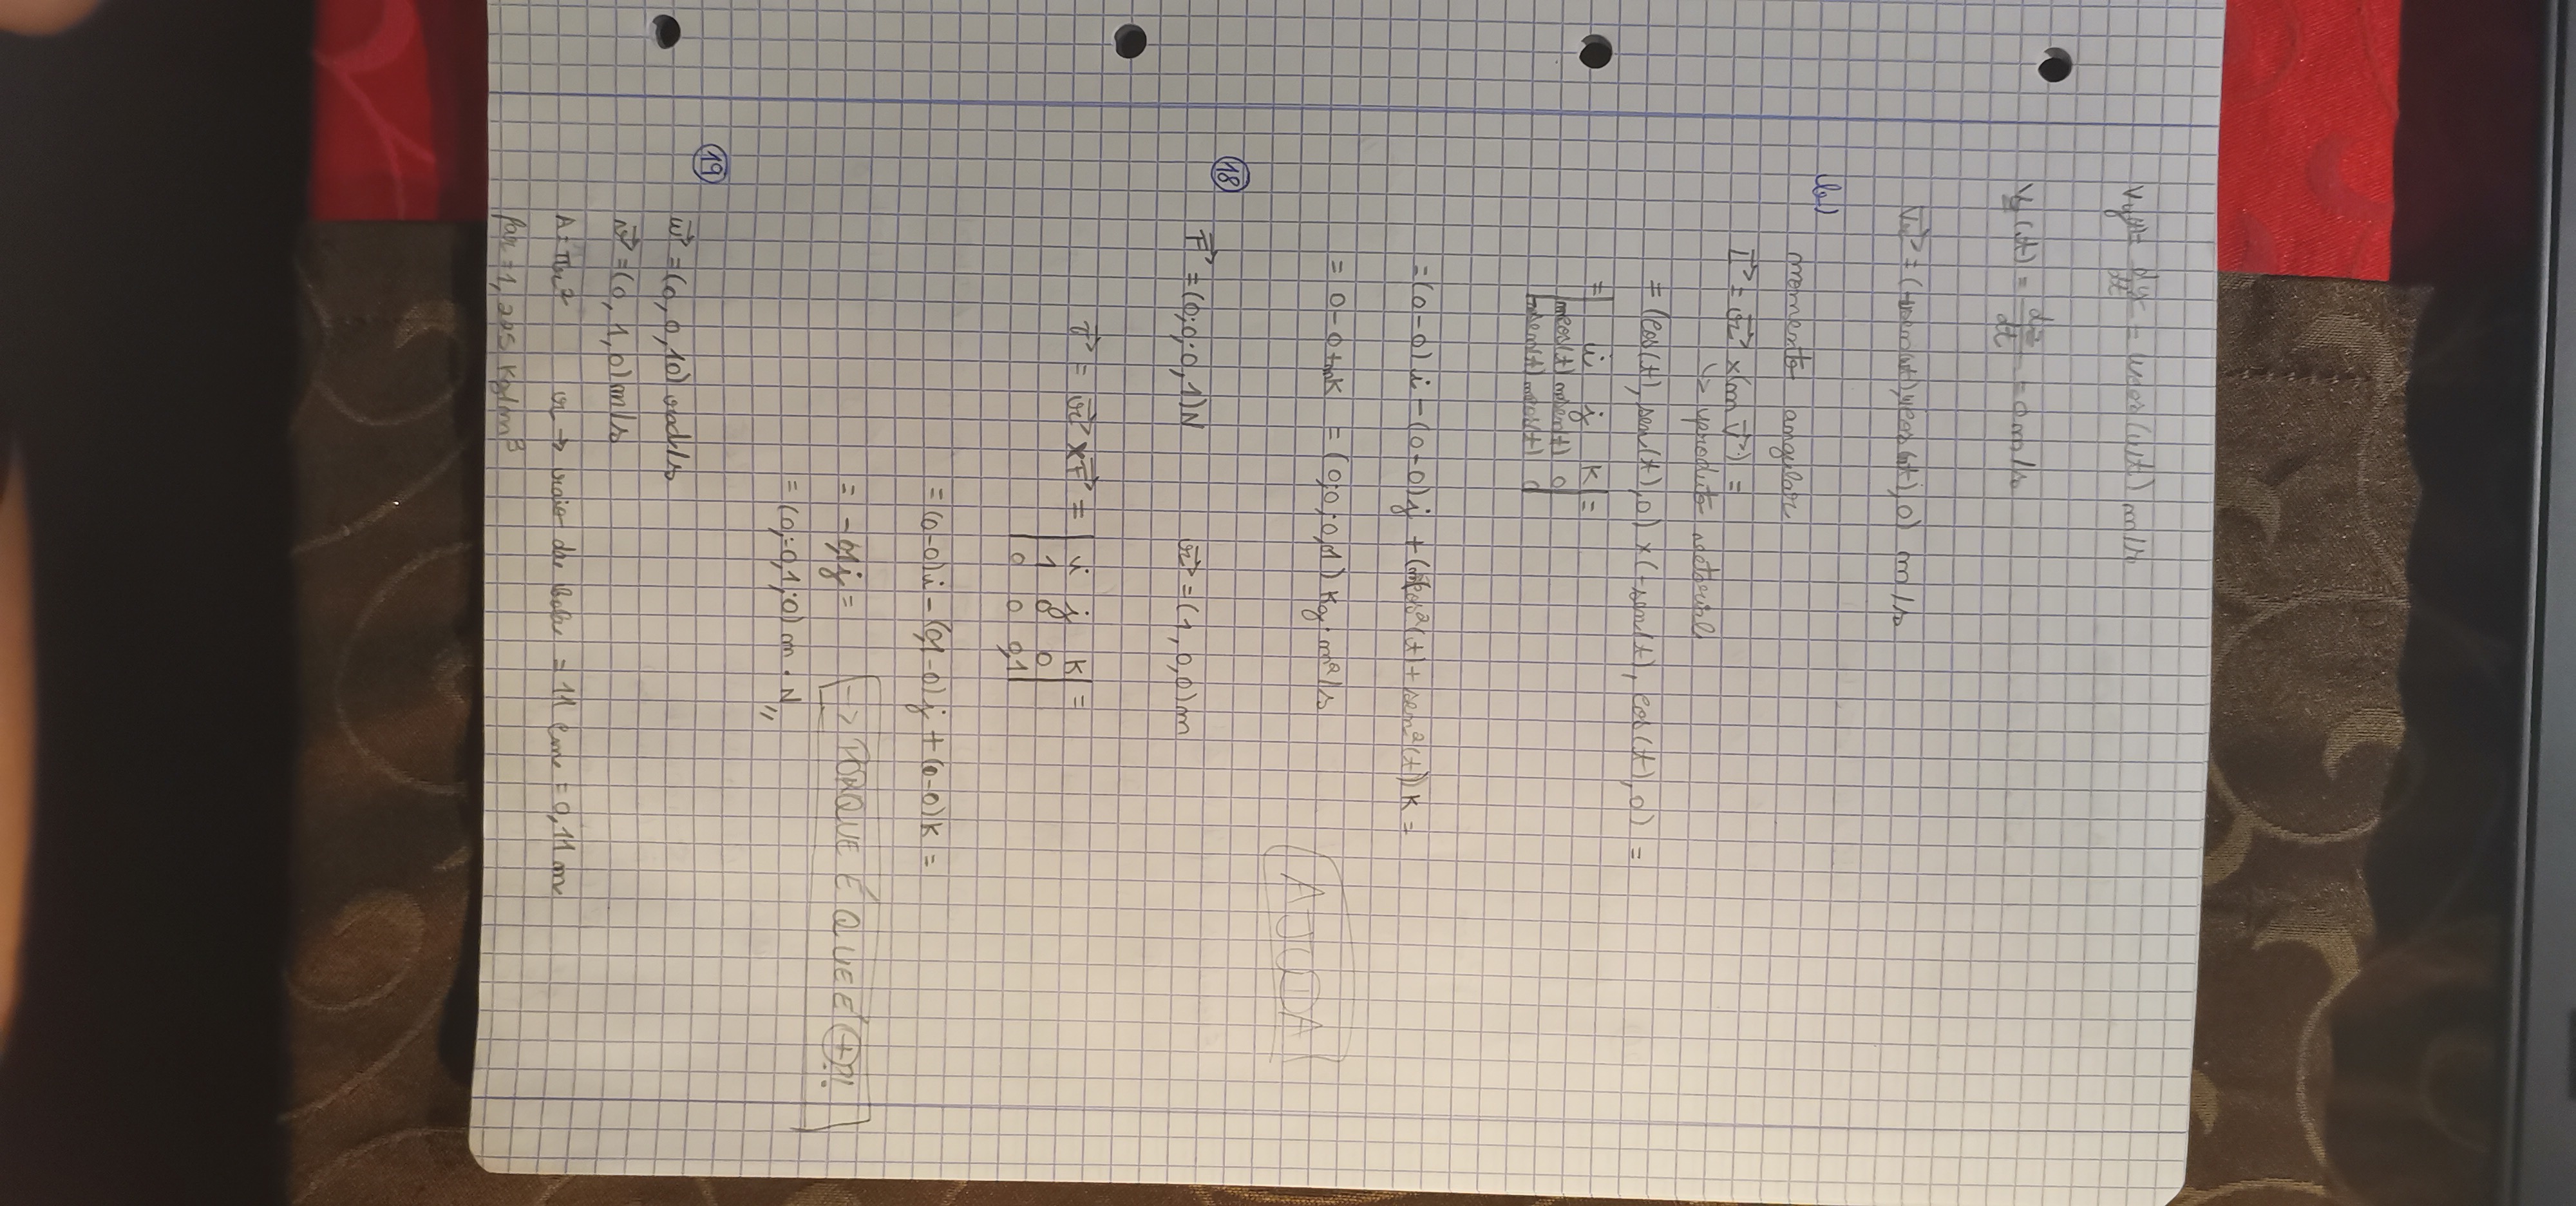 Vy(t) = dy/dt = ω cos(ωt) m/s
Vz(t) = dz/dt = 0 m/s
V⃗ = (-ωsen(ωt), ωcos(ωt), 0) m/s
b)
momento angular
L⃗ = r⃗ x (m v⃗) =
↳ produto vetorial
= (cos(t), sen(t), 0) x (-sen(t), cos(t), 0) =
= | i j k | =
mcos(t) msen(t) 0
-msen(t) mcos(t) 0
= (0-0)i - (0-0)j + (m(cos²(t) + sen²(t)) k =
= 0 - 0 + mk = (0; 0; 0,1) Kg·m²/s
AJUDA
18
F⃗ = (0; 0; 0,1) N r⃗ = (1, 0, 0) m
τ⃗ = r⃗ x F⃗ = | i j k | =
1 0 0
0 0 0,1
= (0-0)i - (0,1-0)j + (0-0)k =
= -0,1j = -> PORQUE É QUE É + ?!
= (0; -0,1; 0) m·N //
19
ω⃗ = (0, 0, 10) rad/s
v⃗ = (0, 1, 0) m/s
A = πr² r → raio da bola = 11 cm = 0,11 m
ρar = 1,225 kg/m³